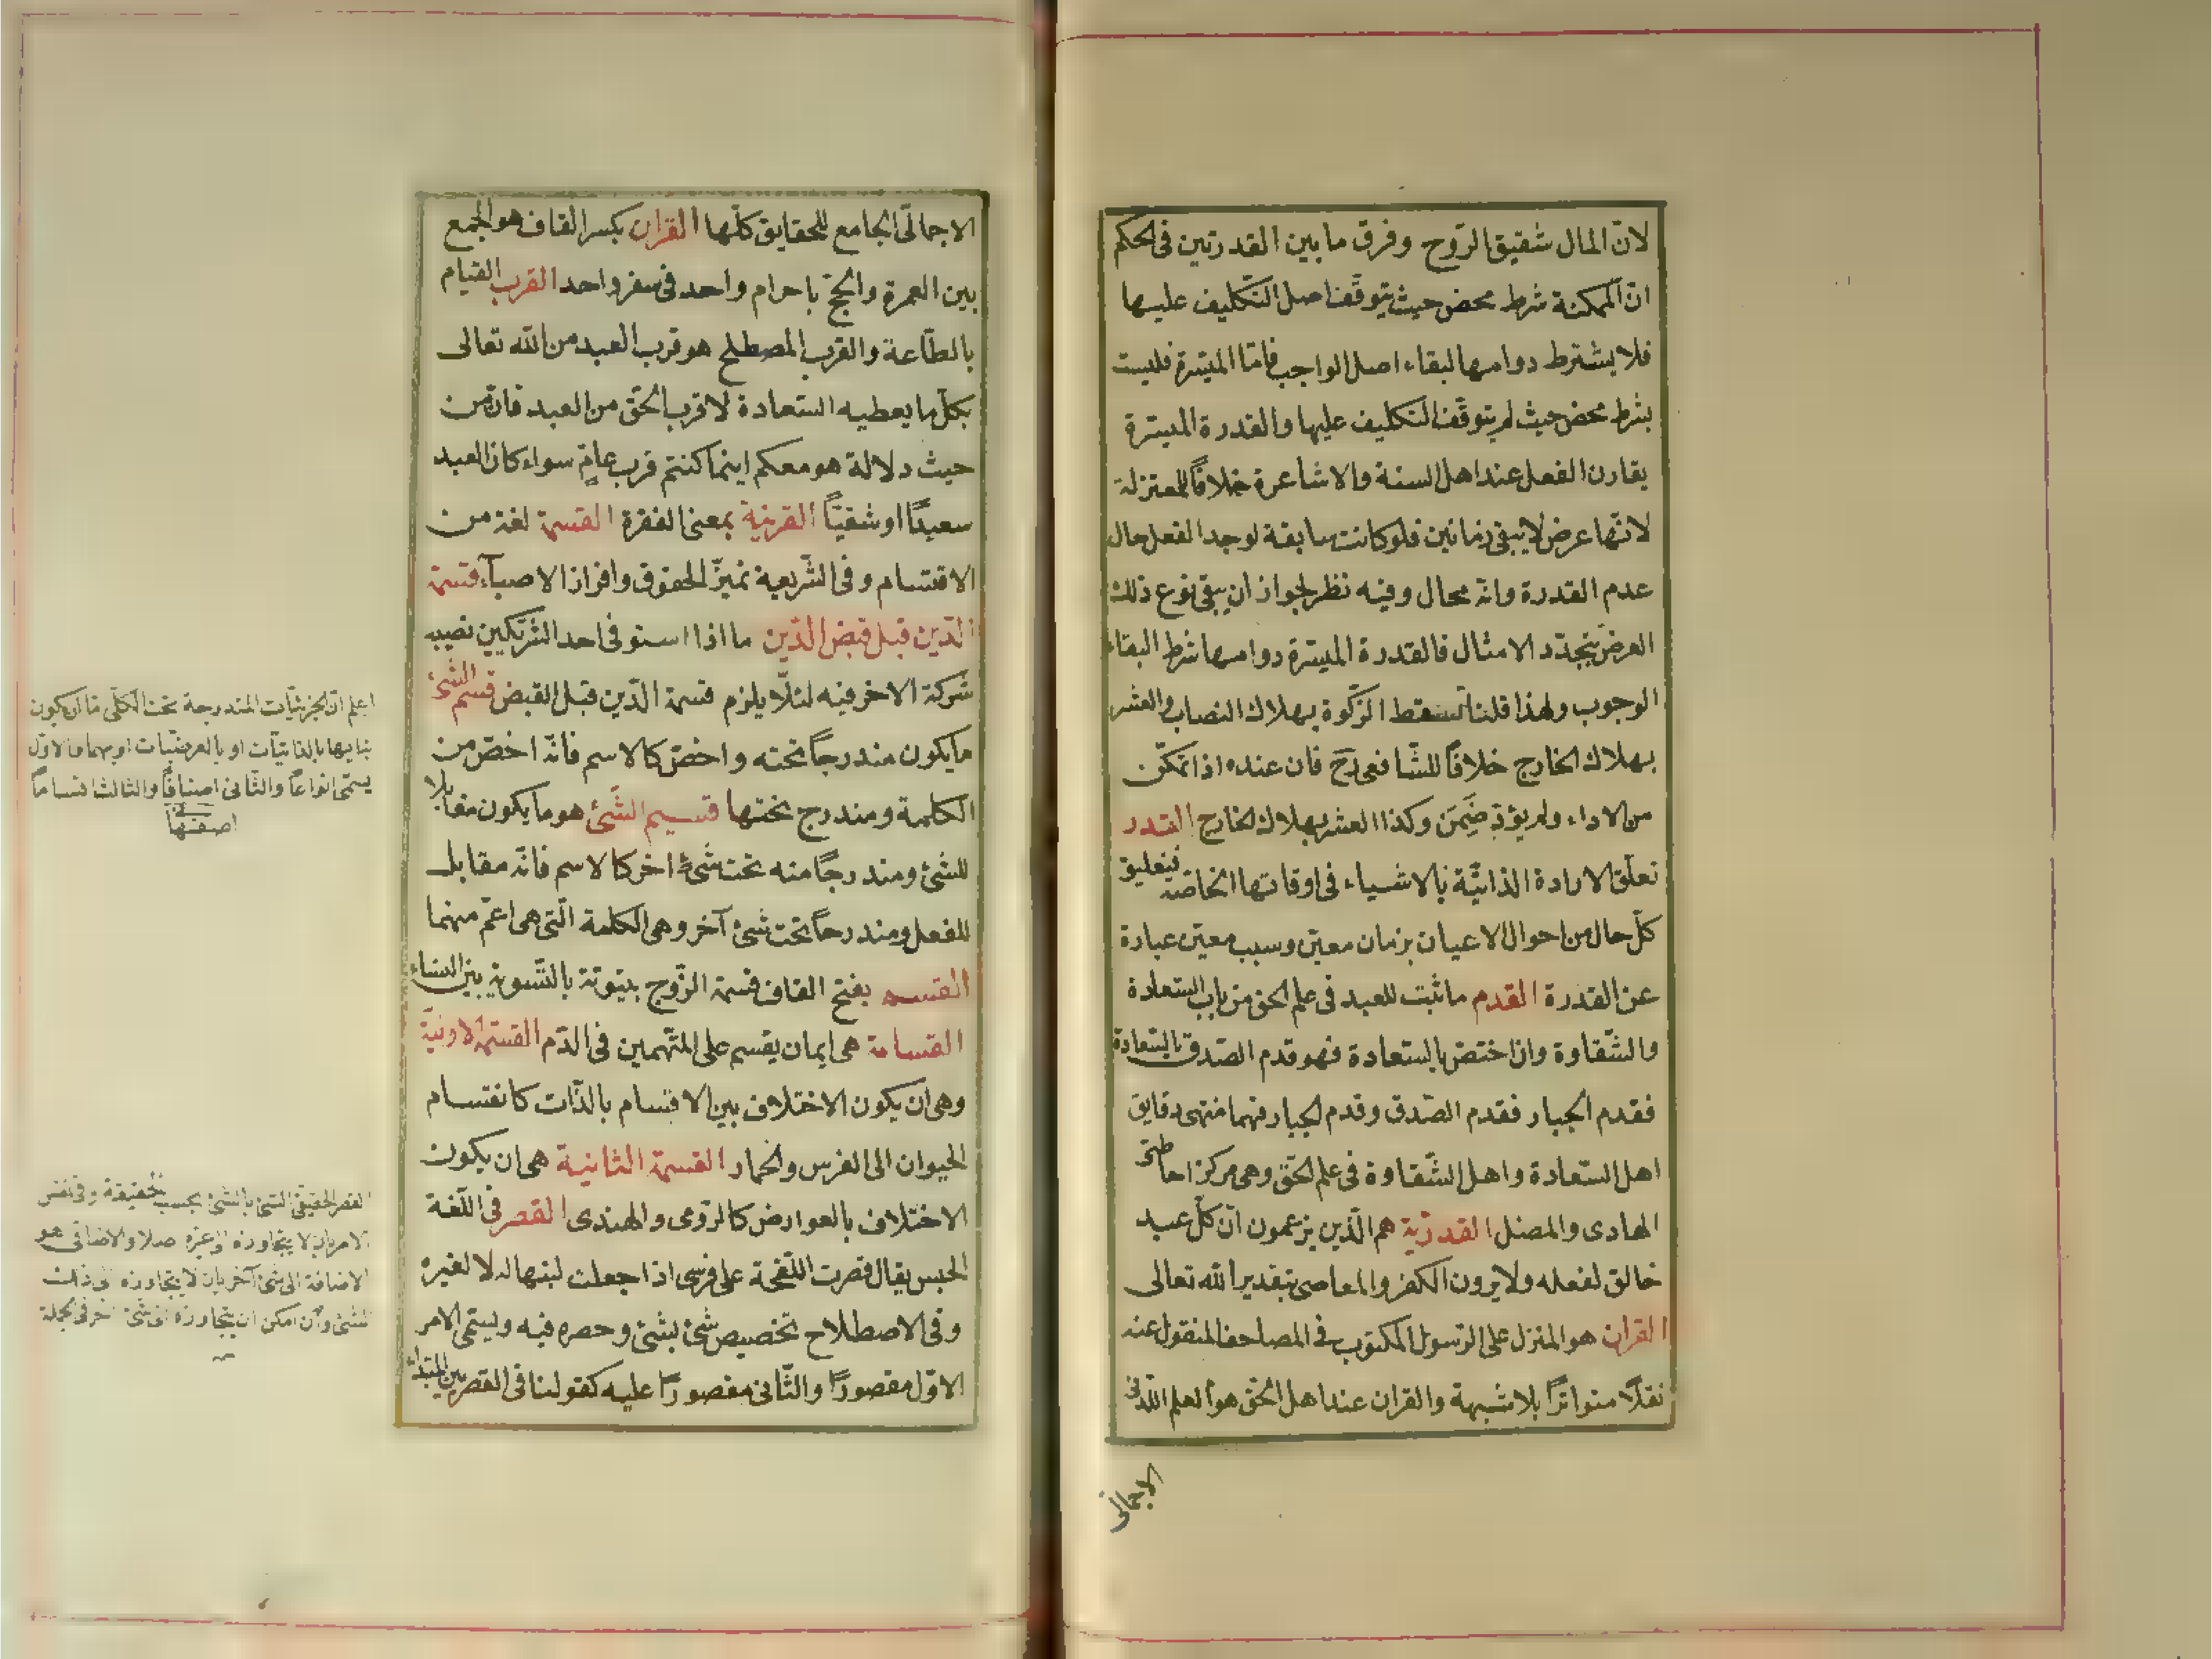 لانّ المال شقيق الرّوح وفرق ما بين القدرتين فى الحكم
انّ الممكنة شرط محض حيث يتوقّف اصل التكليف عليها
فلا يشترط دوامها لبقاء اصل الواجب فامّا الميسّرة فليست
بشرط محض حيث لم يتوقّف التكليف عليها والقدرة الميسّرة
يقارن الفعل عند اهل السنة والاشاعرة خلافاً للمعتزلة
لانّها عرض لا يبقى زمانين فلو كانت سابقة لوجد الفعل حال
عدم القدرة وانه محال وفيه نظر لجواز ان يبقى نوع ذلك
العرض بتجدّد الامثال فالقدرة الميسّرة دوامها شرط البقاء
الوجوب ولهذا قلنا تسقط الزّكوة بهلاك النصاب والعشر
بهلاك الخارج خلافاً للشّافعى رح فان عنده اذا تمكّن
من الاداء ولم يؤدّ ضَمِنَ وكذا العشر بهلاك الخارج القدر
تعلّق الارادة الذاتيّة بالاشياء فى اوقاتها الخاصّة فتعليق
كلّ حال من احوال الاعيان بزمان معيّن وسبب معيّن عبارة
عن القدرة القدم ما ثبت للعبد فى علم الحق من باب السّعادة
والشّقاوة وان اختصّ بالسّعادة فهو قدم الصّدق بالسّعادة
فقدم الجبار فقدم الصّدق وقدم الجبار فهما منتهى دقايق
اهل السّعادة واهل الشّقاوة فى علم الحقّ وهى مركز احاطتى
الهادى والمضل القدريّة هم الّذين يزعمون انّ كلّ عبد
خالق لفعله ولا يرون الكفر والمعاصى بتقدير الله تعالى
القران هو المنزل على الرّسول المكتوب فى المصاحف المنقول عنه
نقلاً متواتراً بلا شبهة والقران عند اهل الحقّ هو العلم اللّدنى
الاجمالى
الاجمالّى الجامع للحقايق كلّها القران بكسر القاف هو الجمع
بين العمرة والحجّ باحرام واحد فى سفر واحد القرب القيام
بالطّاعة والقرب المصطلح هو قرب العبد من الله تعالى
بكلّ ما يعطيه السّعادة لا قرب الحقّ من العبد فانّه من
حيث دلالة هو معكم اينما كنتم قرب عامّ سواء كان العبد
سعيداً او شقيّاً القرينة بمعنى الفقرة القسمة لغة من
الاقتسام وفى الشّريعة تميزّ الحقوق وافراز الاصباء قسمة
الدّين قبل قبض الدّين ما اذا استوفى احد الشّريكين نصيبه
شركة الاخر فيه لئلّا يلزم قسمة الدّين قبل القبض قسم الشّئ
ما يكون مندرجاً تحته واخصّ كالاسم فانّه اخصّ من
الكلمة ومندرج تحتها قسيم الشّئ هو ما يكون مقابلا
للشئ ومندرجاً منه تحت شئ اخر كالاسم فانّه مقابل
للفعل ومندرجاً تحت شئ آخر وهى الكلمة الّتى هى اعمّ منهما
القسم بفتح القاف قسمة الزّوج بيتوتة بالتّسوية بين النساء
القسامة هى ايمان يقسم على المتّهمين فى الدّم القسمة الاوليّة
وهى ان يكون الاختلاف بين الاقسام بالذّات كانقسام
الحيوان الى الفرس والحمار القسمة الثانية هى ان يكون
الاختلاف بالعوارض كالرّومى والهندى القصر فى اللّغة
الحبس يقال قصرت اللّقحة على فرسى اذا جعلت لبنها له لا لغيره
وفى الاصطلاح تخصيص شئ بشئ وحصره فيه ويسمّى الامر
الاوّل مقصوراً والثّانى مقصوراً عليه كقولنا فى القصر بين المبتداء
اعلم انّ الجزئيّات المندرجة تحت الكلّى امّا ان يكون
تباينها بالذاتيّات او بالعرضيّات او بهما والاوّل
يسمّى انواعاً والثّانى اصنافاً والثالث اقساماً
القصر الحقيقى الشئ بالشئ بحسب الحقيقة وفى نفس
الامر بان لا يتجاوزه الى غيره اصلا والاضافى هو
الاضافة الى شئ آخر بان لا يتجاوزه الى ذلك
الشئ وان امكن ان يتجاوزه الى شئ اخر فى الجملة